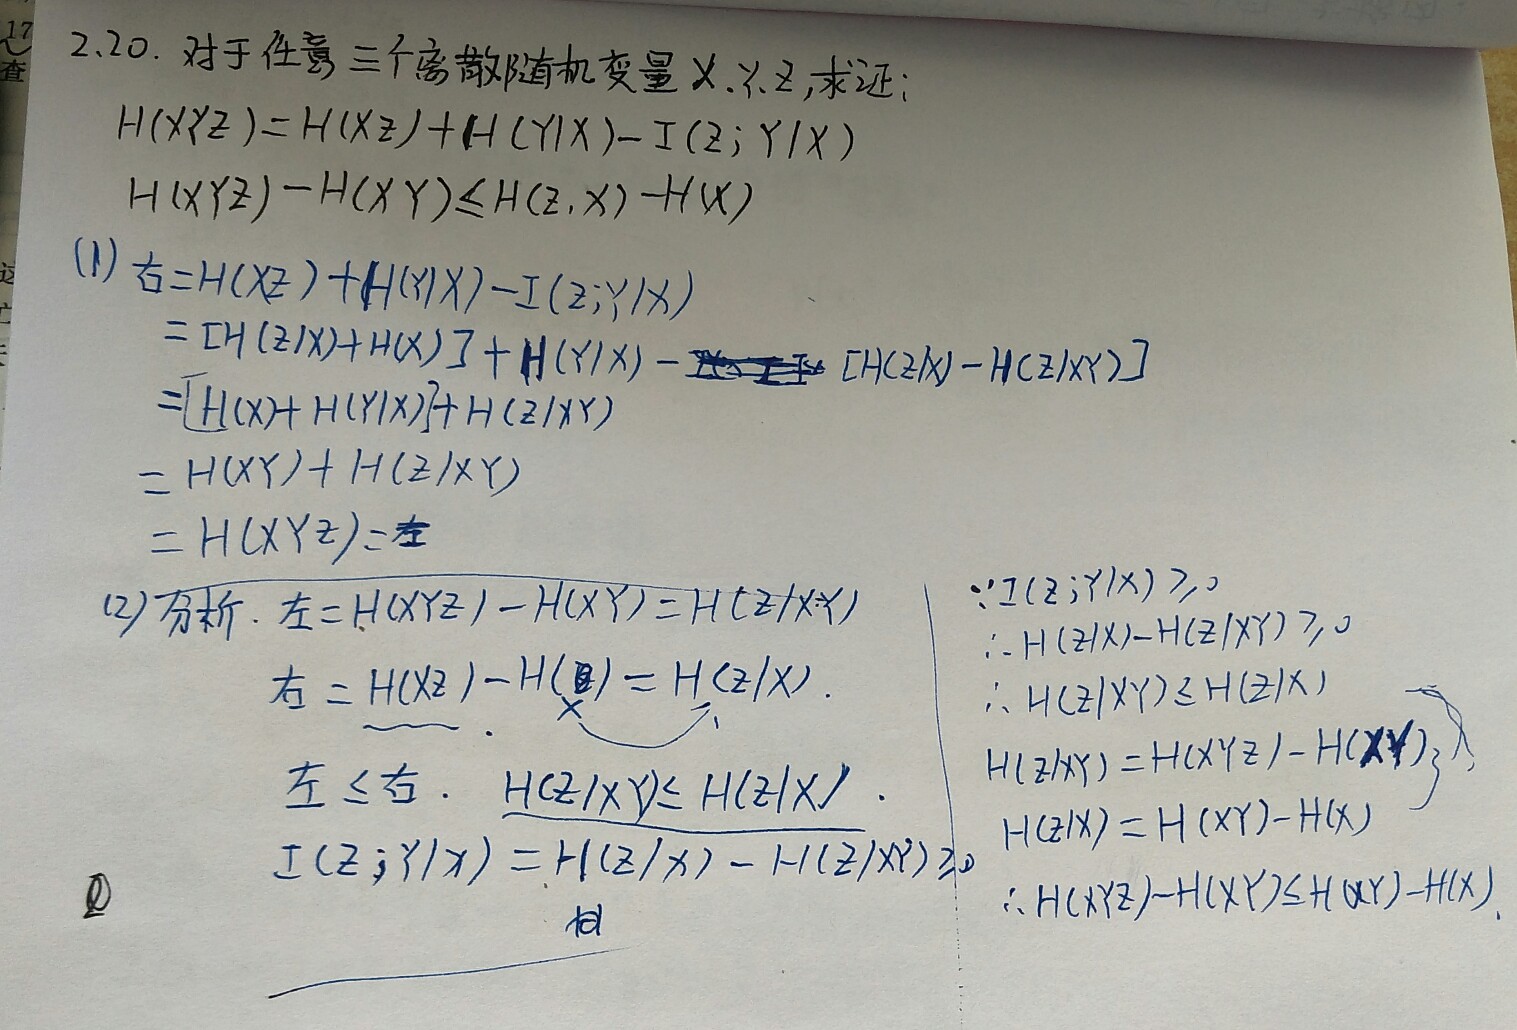 17
查
2.20. 对于任意三个离散随机变量 X.Y.Z,求证;
H(XYZ)=H(XZ)+H(Y|X)-I(Z;Y|X)
H(XYZ)-H(XY)≤H(Z,X)-H(X)
(1) 右=H(XZ)+H(Y|X)-I(Z;Y|X)
=[H(Z|X)+H(X)]+H(Y|X)- [H(Z|X)-H(Z|XY)]
=[H(X)+H(Y|X)]+H(Z|XY)
=H(XY)+H(Z|XY)
=H(XYZ)=左
(2)分析. 左=H(XYZ)-H(XY)=H(Z|XY)
右=H(XZ)-H( )=H(Z|X).
X
左≤右. H(Z|XY)≤H(Z|X).
I(Z;Y|X)=H(Z|X)-H(Z|XY)≥0
∵I(Z;Y|X)≥0
∴H(Z|X)-H(Z|XY)≥0
∴H(Z|XY)≤H(Z|X)
H(Z|XY)=H(XYZ)-H(XY)
H(Z|X)=H(XY)-H(X)
∴H(XYZ)-H(XY)≤H(XY)-H(X).